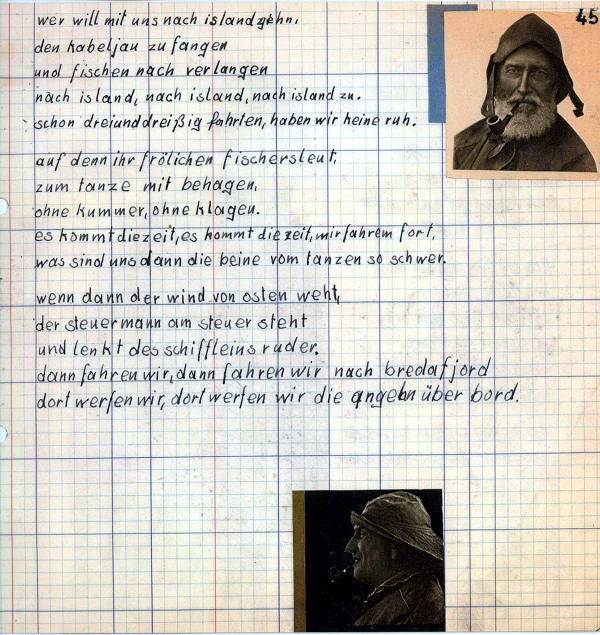 45
wer will mit uns nach island gehn,
den kabeljau zu fangen
und fischen nach verlangen
nach island, nach island, nach island zu.
schon dreiunddreißig fahrten, haben wir keine ruh.
auf denn ihr frölichen fischersleut,
zum tanze mit behagen,
ohne kummer, ohne klagen.
es kommt die zeit, es kommt die zeit, wir fahrem fort,
was sind uns dann die beine vom tanzen so schwer.
wenn dann der wind von osten weht,
der steuermann am steuer steht
und lenkt des schiffleins ruder.
dann fahren wir, dann fahren wir nach bredafjord
dort werfen wir, dort werfen wir die angeln über bord.